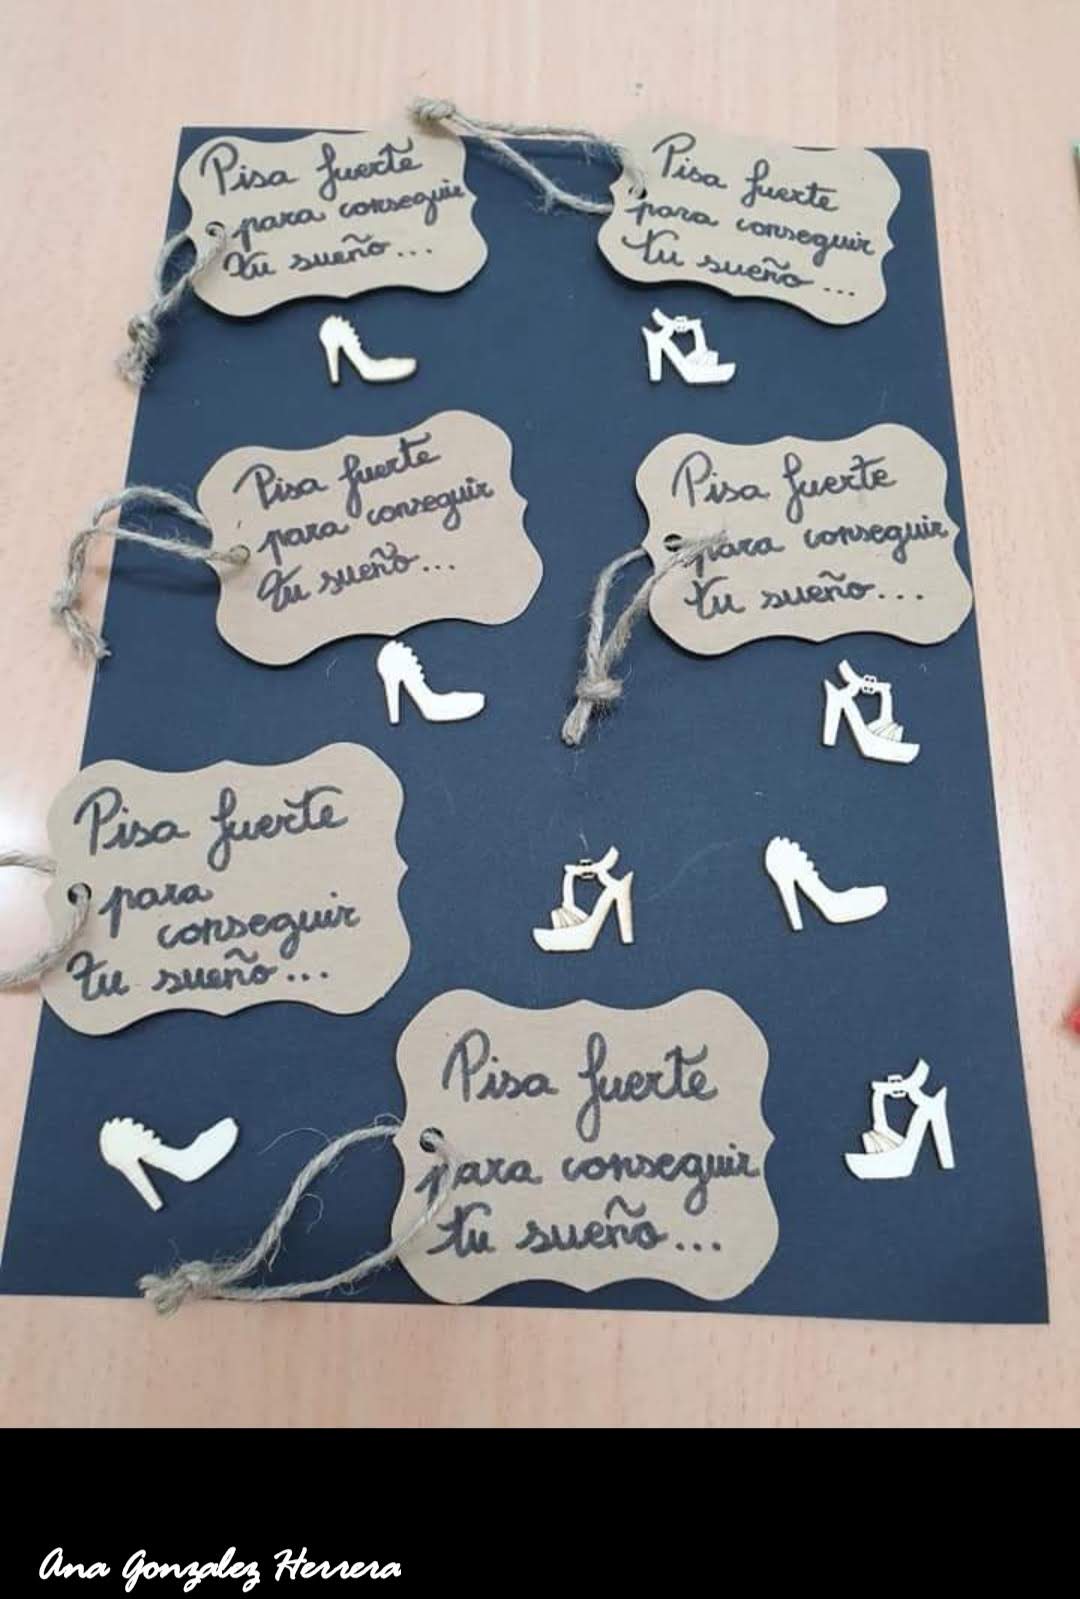 Pisa fuerte
para conseguir
tu sueño...
Pisa fuerte
para conseguir
tu sueño...
Pisa fuerte
para conseguir
tu sueño...
Pisa fuerte
para conseguir
tu sueño...
Pisa fuerte
para
conseguir
tu sueño...
Pisa fuerte
para conseguir
tu sueño...
Ana Gonzalez Herrera